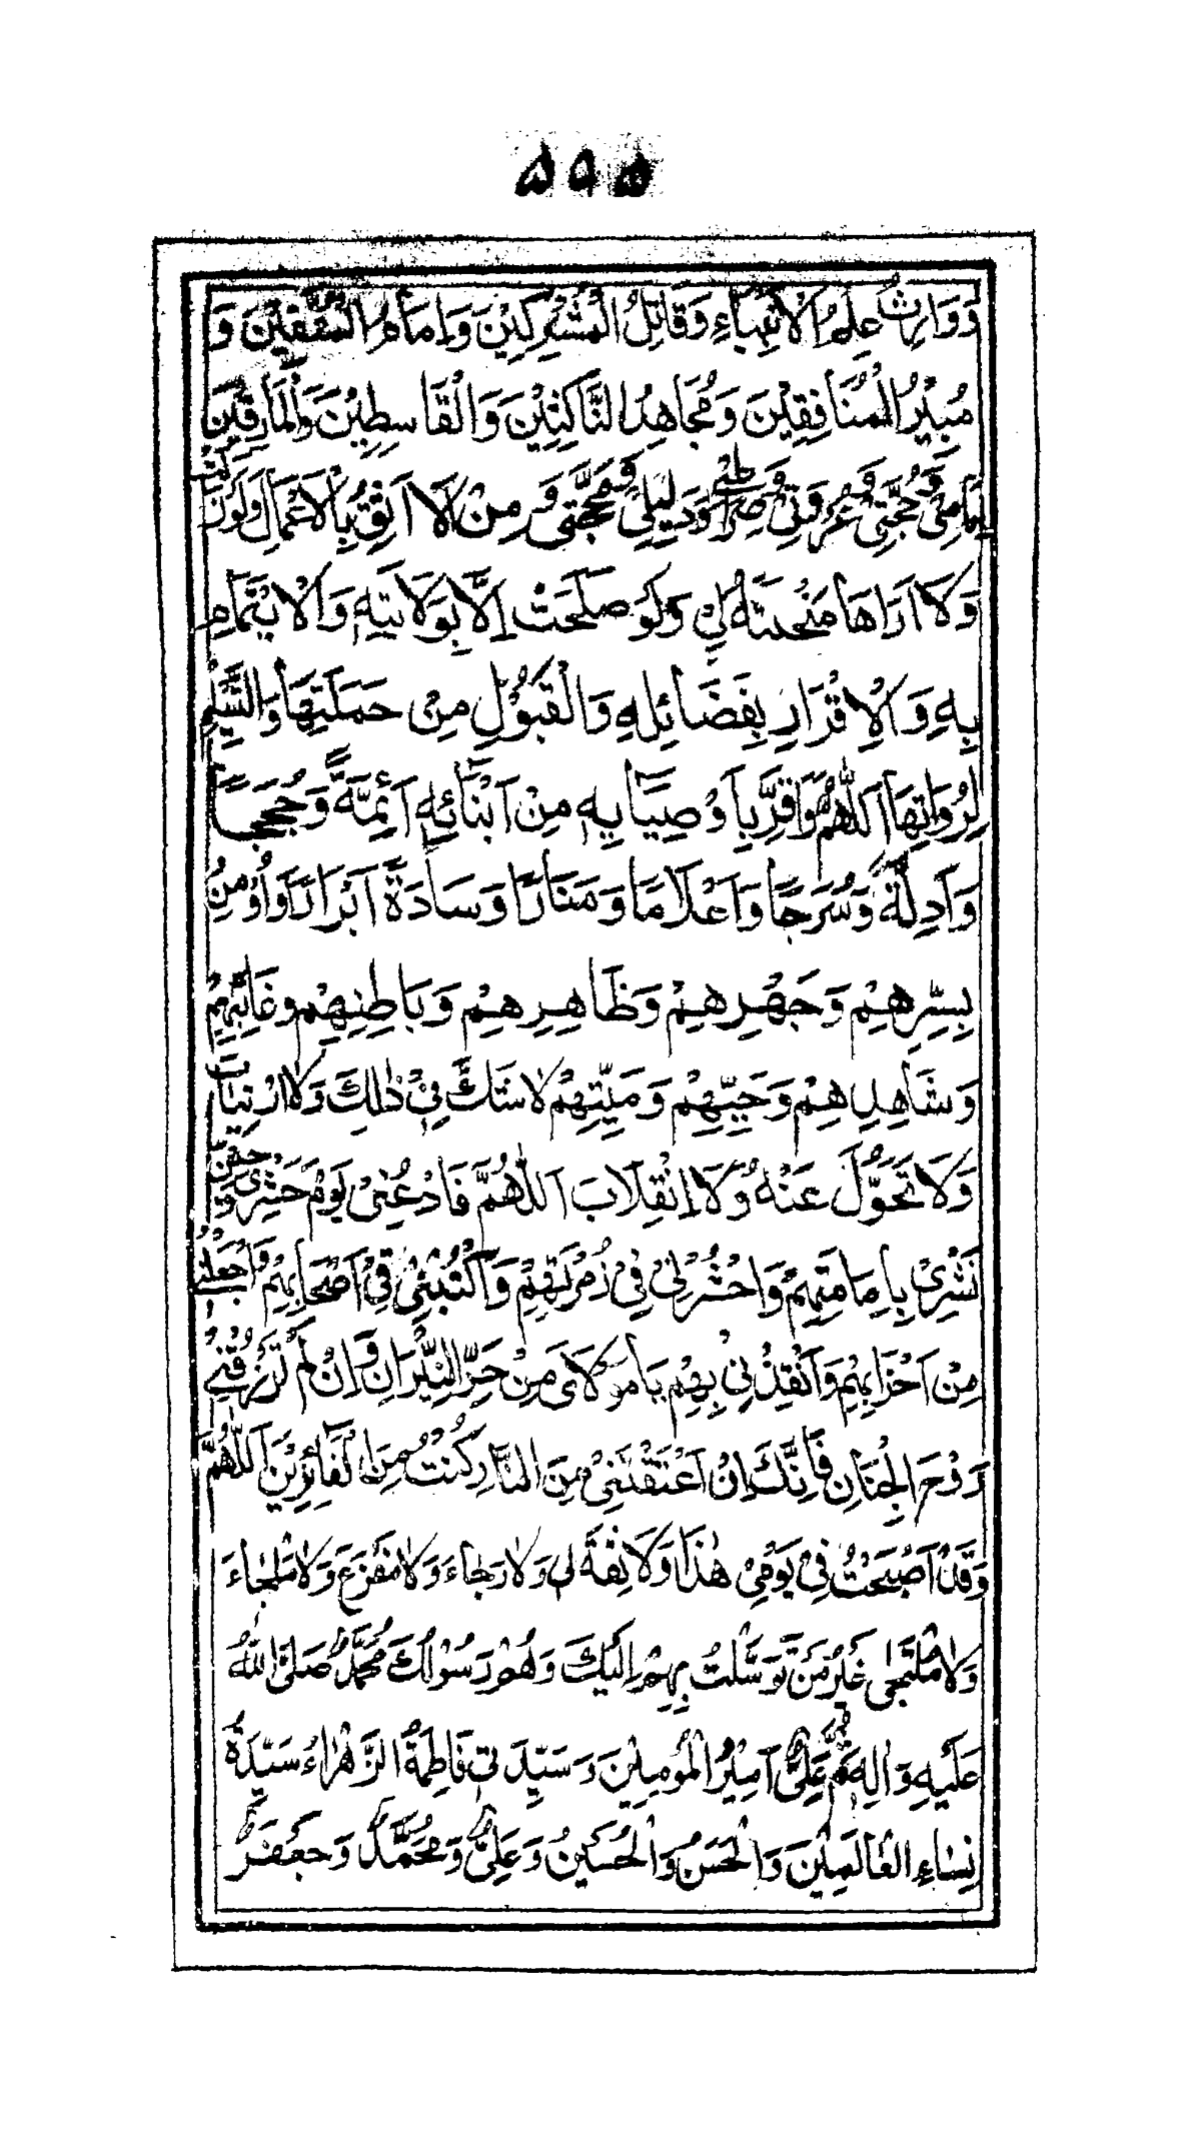 ۵۹۵
وَوَارِثُ عِلْمِ الْاَنْبِيَاءِ وَقَاتِلُ الْمُشْرِكِيْنَ وَاِمَامُ الْمُتَّقِيْنَ وَ
مُبِيْرُ الْمُنَافِقِيْنَ وَمُجَاهِدُ النَّاكِثِيْنَ وَالْقَاسِطِيْنَ وَالْمَارِقِيْنَ
اِمَامِيْ وَحُجَّتِيْ وَعُرْوَتِيْ وَصِرَاطِيْ وَدَلِيْلِيْ وَمَحَجَّتِيْ وَمِنْ لَا اَثِقُ بِالْاَعْمَالِ وَلَوْ زَكَتْ
وَلَا اَرَاهَا مُنْجِيَةً لِيْ وَلَوْ صَلُحَتْ اِلَّا بِوَلَايَتِهِ وَالْاِيْتِمَامِ
بِهِ وَالْاِقْرَارِ بِفَضَائِلِهِ وَالْقَبُوْلِ مِنْ حَمَلَتِهَا وَالتَّسْلِيْمِ
لِرُوَاتِهَا اَللّٰهُمَّ وَاُقِرُّ بِاَوْصِيَائِهِ مِنْ اَبْنَائِهِ اَئِمَّةً وَّحُجَجًا
وَاَدِلَّةً وَّسُرُجًا وَاَعْلَامًا وَمَنَارًا وَسَادَةً اَبْرَارًا وَاُوْمِنُ
بِسِرِّهِمْ وَجَهْرِهِمْ وَظَاهِرِهِمْ وَبَاطِنِهِمْ وَغَائِبِهِمْ
وَشَاهِدِهِمْ وَحَيِّهِمْ وَمَيِّتِهِمْ لَا شَكَّ فِيْ ذٰلِكَ وَلَا ارْتِيَابَ
وَلَا تَحَوُّلَ عَنْهُ وَلَا اِنْقِلَابَ اَللّٰهُمَّ فَادْعُنِيْ يَوْمَ حَشْرِيْ وَحِيْنَ
نَشْرِيْ بِاِمَامَتِهِمْ وَاحْشُرْنِيْ فِيْ زُمْرَتِهِمْ وَاكْتُبْنِيْ فِيْ اَصْحَابِهِمْ وَاجْعَلْنِيْ
مِنْ اَحْزَابِهِمْ وَاَنْقِذْنِيْ بِهِمْ يَا مَوْلَايَ مِنْ حَرِّ النِّيْرَانِ وَاِنْ لَمْ تَرْزُقْنِيْ
رَوْحَ الْجِنَانِ فَاِنَّكَ اِنْ اَعْتَقْتَنِيْ مِنَ النَّارِ كُنْتُ مِنَ الْفَائِزِيْنَ اَللّٰهُمَّ
وَقَدْ اَصْبَحْتُ فِيْ يَوْمِيْ هٰذَا وَلَا ثِقَةَ لِيْ وَلَا رَجَاءَ وَلَا مَفْزَعَ وَلَا مَلْجَاءَ
وَلَا مُلْتَجٰى غَيْرُ مَنْ تَوَسَّلْتُ بِهِمْ اِلَيْكَ وَهُمْ رَسُوْلُكَ مُحَمَّدٌ صَلَّى اللّٰهُ
عَلَيْهِ وَاٰلِهِ ثُمَّ عَلِيٌّ اَمِيْرُ الْمُوْمِنِيْنَ وَسَيِّدَتِيْ فَاطِمَةُ الزَّهْرَاءُ سَيِّدَةُ
نِسَاءِ الْعَالَمِيْنَ وَالْحَسَنُ وَالْحُسَيْنُ وَعَلِيٌّ وَمُحَمَّدٌ وَجَعْفَرٌ